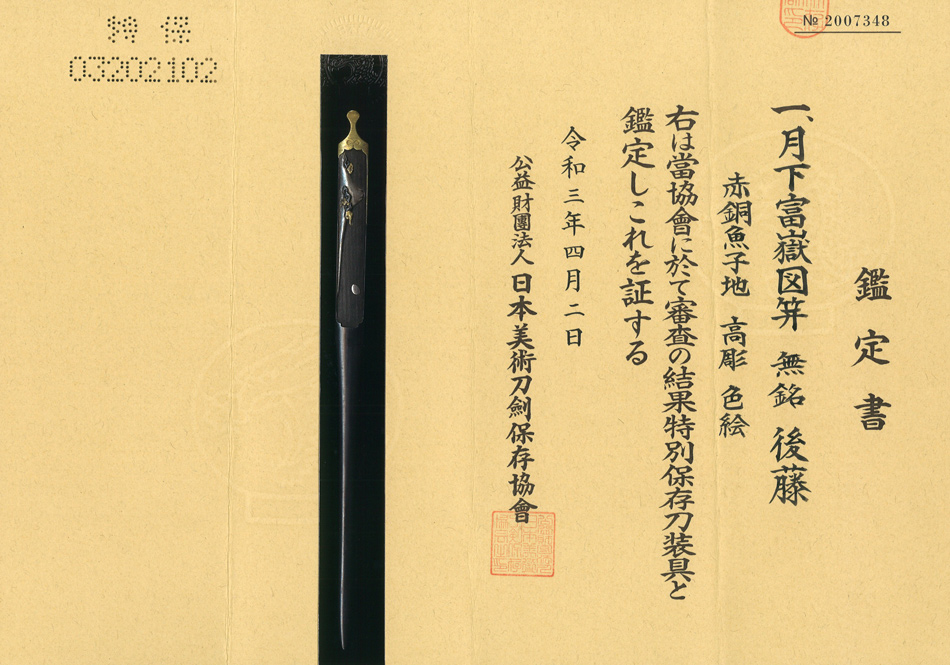 鑑定書
一、月下富嶽図笄 無銘 後藤
赤銅魚子地 高彫 色絵
右は當協會に於て審査の結果特別保存刀装具と
鑑定しこれを証する
令和三年四月二日
公益財團法人 日本美術刀劍保存協會
№ 2007348
特保
03202102